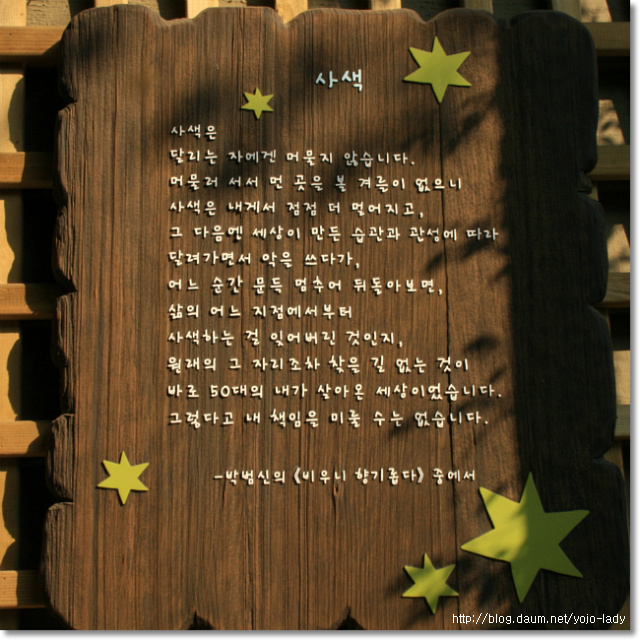 사색
사색은
달리는 자에겐 머물지 않습니다.
머물러 서서 먼 곳을 볼 겨를이 없으니
사색은 내게서 점점 더 멀어지고,
그 다음엔 세상이 만든 습관과 관성에 따라
달려가면서 악을 쓰다가,
어느 순간 문득 멈추어 뒤돌아보면,
삶의 어느 지점에서부터
사색하는 걸 잊어버린 것인지,
원래의 그 자리조차 찾을 길 없는 것이
바로 50대의 내가 살아온 세상이었습니다.
그렇다고 내 책임을 미룰 수는 없습니다.
-박범신의 《비우니 향기롭다》 중에서
http://blog.daum.net/yojo-lady